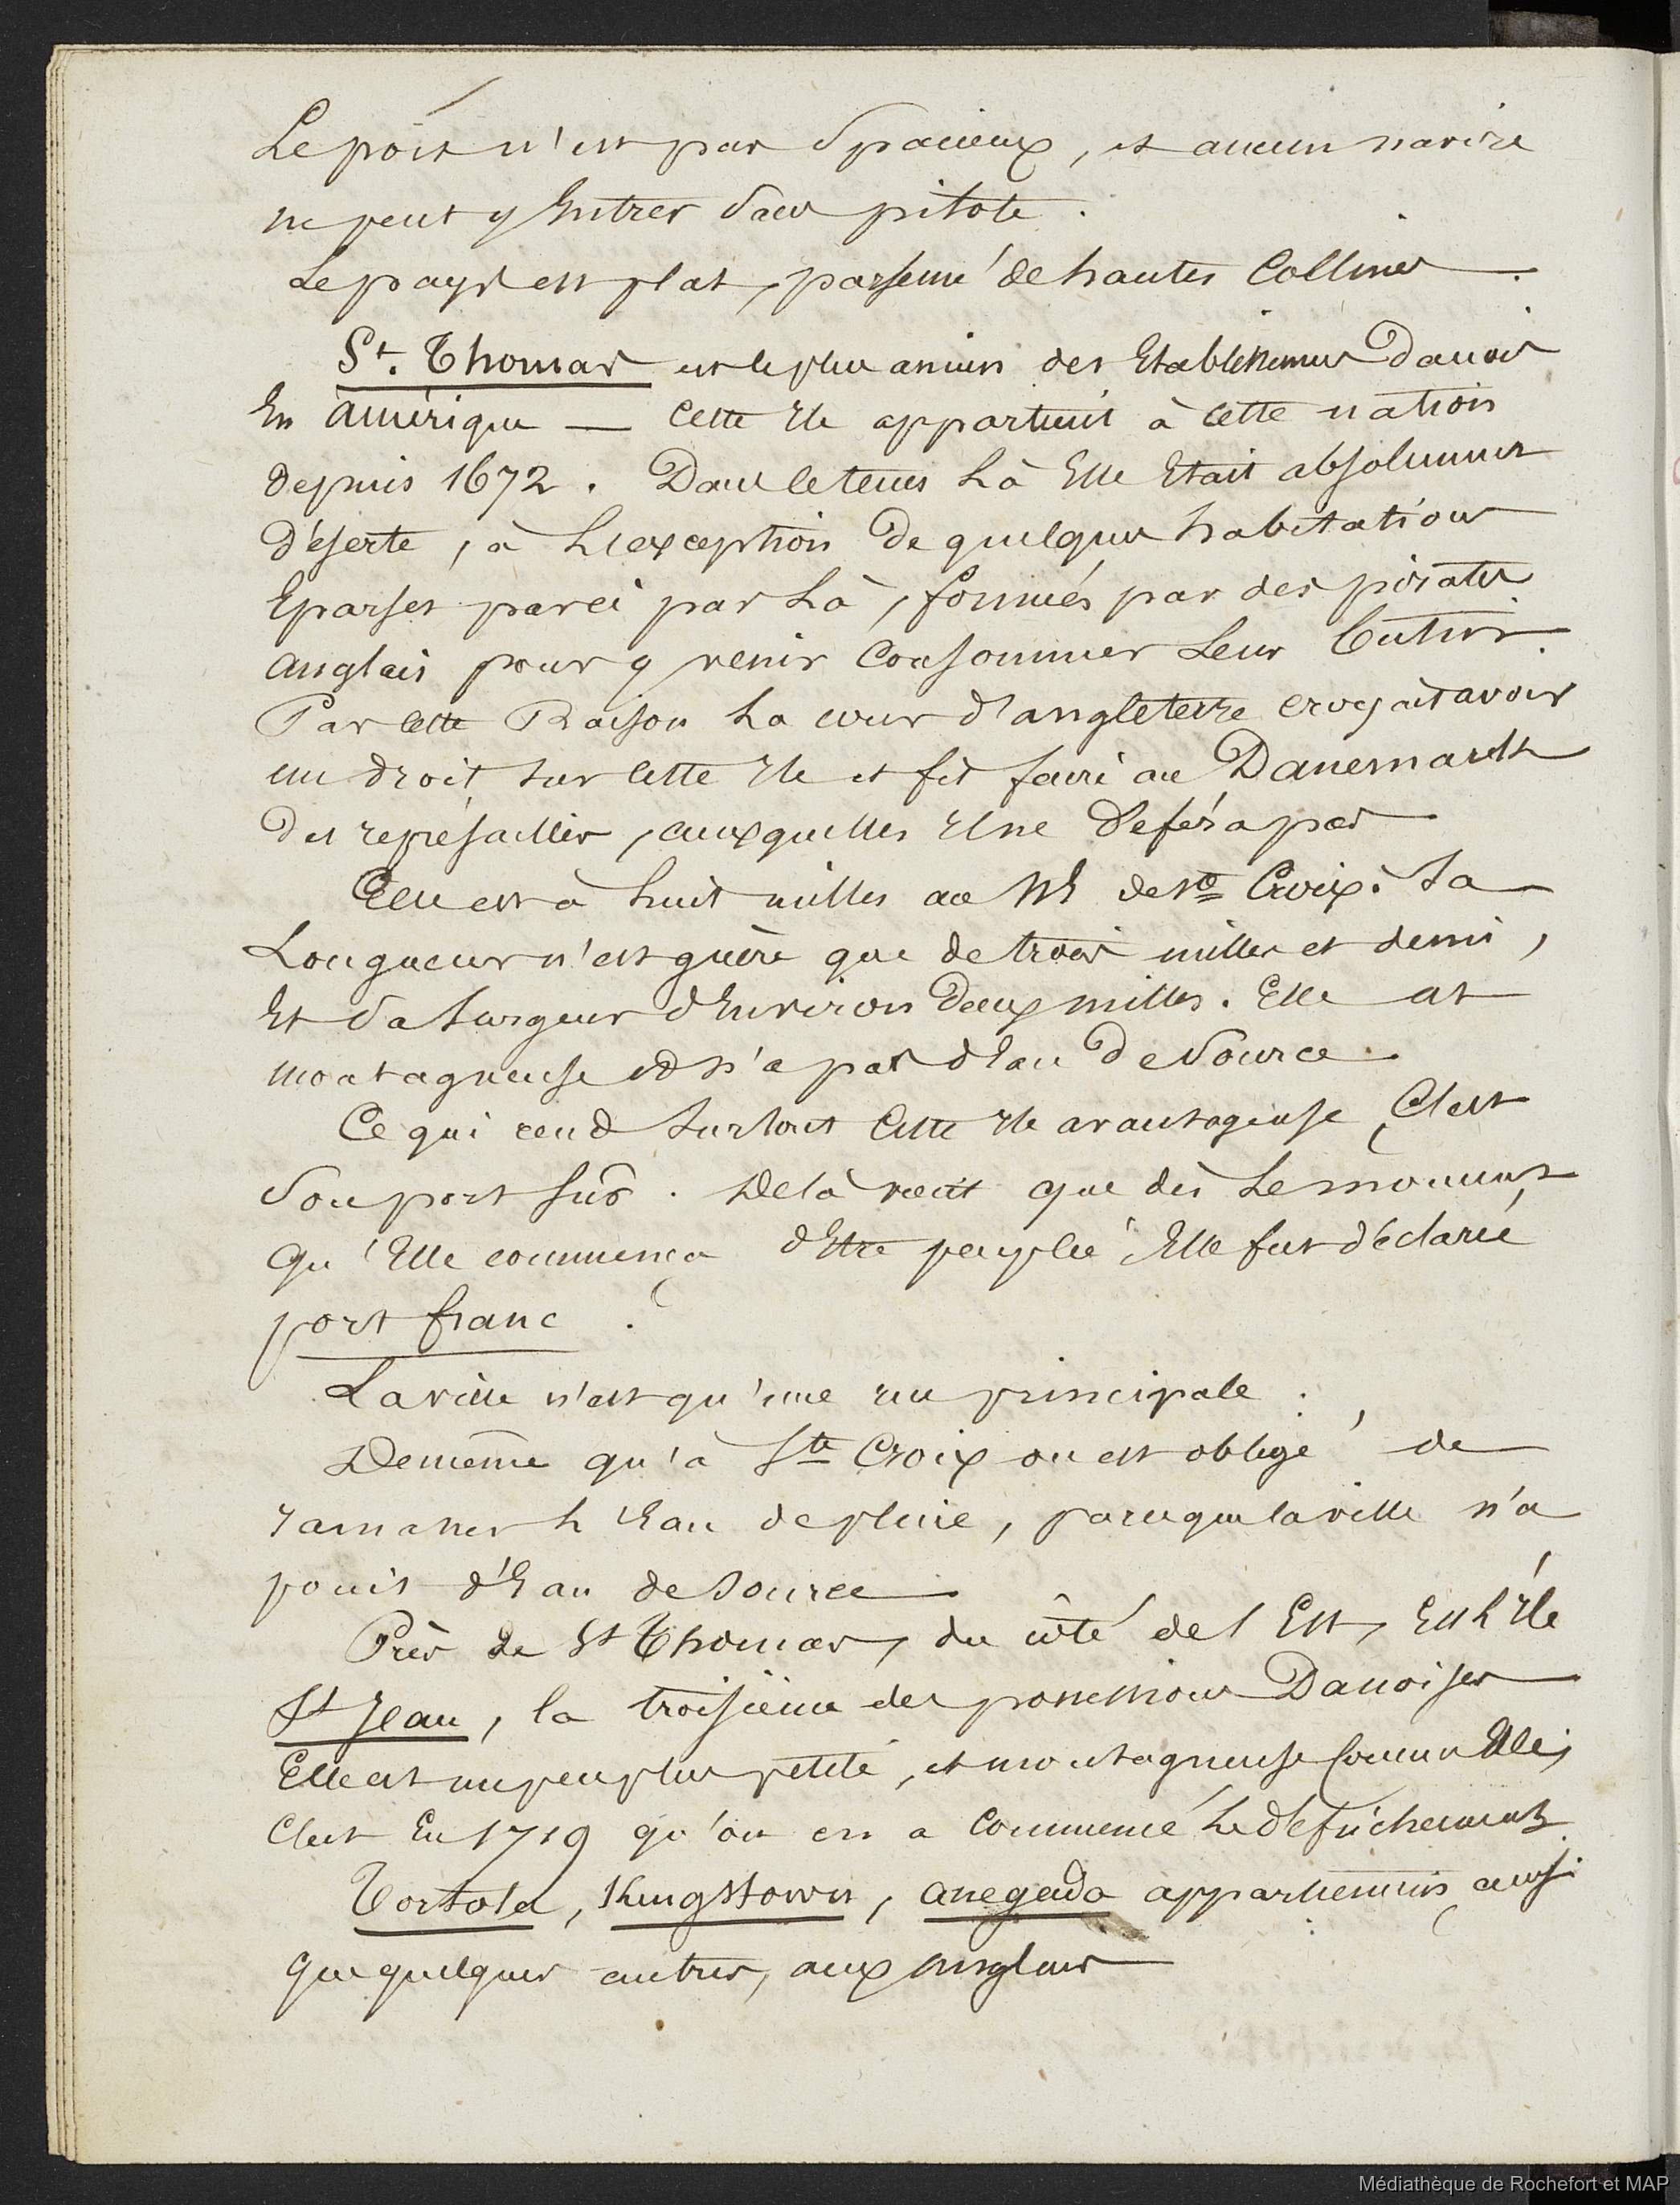 Le port n'est pas Spacieux, et aucun navire
ne peut y Entrer Sans pilote.
Le pays est plat, parsemé de hautes Collines.
St. Thomas est le plus ancien des Etablissemens Danois
En amérique — Cette Ile appartient à cette nation
depuis 1672. Dans le tems là Elle Etait absolument
déserte, à L'exception de quelques habitations
Eparses par ci par là, formées par des pirates
anglais pour y venir Consommer Leur Butin.
Par cette Raison La cour d'angleterre croyait avoir
un droit sur cette Ile et fit faire au Danemark
des représailles, auxquelles Il ne déféra pas
Elle est à huit milles au de Ste Croix. Sa
Longueur n'est guère que de trois milles et demi,
Et Sa Largeur d'Environ Deux milles. Elle est
montagneuse et n'a pas d'Eau De Source.
Ce qui rend Surtout Cette Ile avantageuse, C'est
Son port Sûr. De là vient que dès Le moment
qu'Elle commença d'Etre peuplée Elle fut déclarée
port franc.
La ville n'est qu'une rue principale.
De même qu'à Ste Croix on est obligé de
ramasser L'Eau de pluie, parceque la ville n'a
point d'Eau de Source
Près de St Thomas, du côté de l'Est, Est L'Ile
St Jean, la troisième des possessions Danoises
Elle est un peu plus petite, et montagneuse Comme Elle;
C'est En 1719 qu'on en a Commencé Le défrichement.
Tortola, Kingstown, anegada appartiennent, ainsi
que quelques autres, aux anglais
Médiathèque de Rochefort et MAP